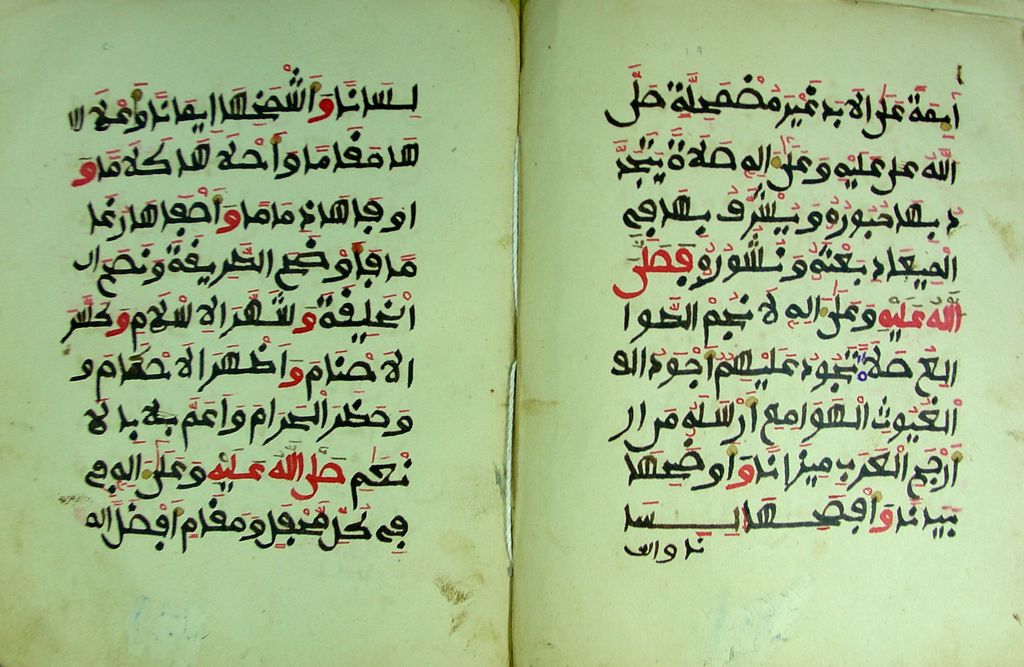 ايمة على الابد غير مضمحلة صلى
الله على عليه وعلى اله صلاة يتجد
د بها حبوره ويشرف بها في
الميعاد بعثه ونشوره فصلى
الله عليه وعلى اله لا نجم الطوا
الع صلاة تجود عليهم اجود الغ
الغيوث الهوامع ارسله من ار
ارجح العرب ميزانا واوضحها
بيانا وافصحها لسا
نا واش
لسانا واشمخها ايمانا واعلا
ها مقاما واحلاها كلاما و
اوفاها ذماما واصفاها رغا
ما فاوضح الطريقة ونصح ال
الخليقة وشهر الاسلام وكسر
الاصنام واظهر الاحكام و
وحظر الحرام واعم بالا
نعام صلى الله عليه وعلى اله في
في كل محفل ومقام افضل ال